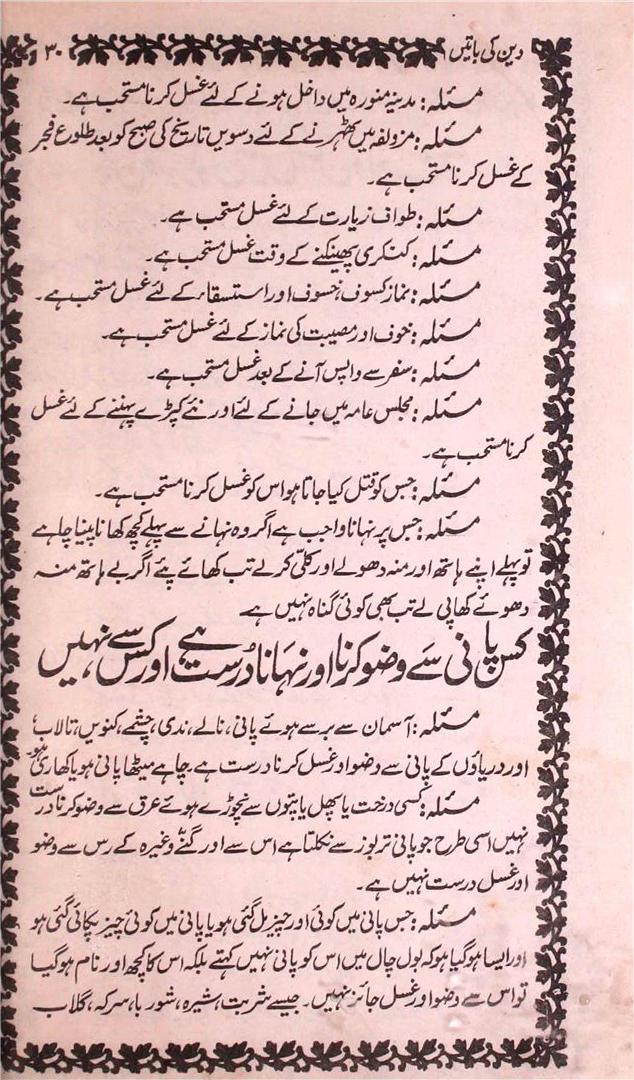 دین کی باتیں ۳۰
مسئلہ: مدینہ منورہ میں داخل ہونے کے لئے غسل کرنا مستحب ہے۔
مسئلہ: مزولفہ میں ٹھہرنے کے لئے دسویں تاریخ کی صبح کو بعد طلوع فجر
کے غسل کرنا مستحب ہے۔
مسئلہ: طواف زیارت کے لئے غسل مستحب ہے۔
مسئلہ: کنکری پھینکنے کے وقت غسل مستحب ہے۔
مسئلہ: نماز کسوف، خسوف اور استسقاء کے لئے غسل مستحب ہے۔
مسئلہ: خوف اور مصیبت کی نماز کے لئے غسل مستحب ہے۔
مسئلہ: سفر سے واپس آنے کے بعد غسل مستحب ہے۔
مسئلہ: مجلس عامہ میں جانے کے لئے اور نئے کپڑے پہننے کے لئے غسل
کرنا مستحب ہے۔
مسئلہ: جس کو قتل کیا جاتا ہو اس کو غسل کرنا مستحب ہے۔
مسئلہ: جس پر نہانا واجب ہے اگر وہ نہانے سے پہلے کچھ کھانا پینا چاہے
تو پہلے اپنے ہاتھ اور منہ دھولے اور کلی کرلے تب کھائے پئے اگر بے ہاتھ منہ
دھوئے کھا پی لے تب بھی کوئی گناہ نہیں ہے
کس پانی سے وضو کرنا اور نہانا درست ہے اور کس سے نہیں
مسئلہ: آسمان سے برسے ہوئے پانی، نالے، ندی، چشمے، کنویں، تالاب
اور دریاؤں کے پانی سے وضو اور غسل کرنا درست ہے۔ چاہے میٹھا پانی ہو یا کھاری ہو
مسئلہ: کسی درخت یا پھل یا پتوں سے نچوڑے ہوئے عرق سے وضو کرنا درست
نہیں اسی طرح جو پانی تربوز سے نکلتا ہے اس سے اور گنے وغیرہ کے رس سے وضو
اور غسل درست نہیں ہے۔
مسئلہ: جس پانی میں کوئی اور چیز مل گئی ہو یا پانی میں کوئی چیز پکائی گئی ہو
اور ایسا ہو گیا ہو کہ بول چال میں اس کو پانی نہیں کہتے بلکہ اس کا کچھ اور نام ہو گیا
تو اس سے وضو اور غسل جائز نہیں۔ جیسے شربت، شیرہ، شوربا، سرکہ، گلاب